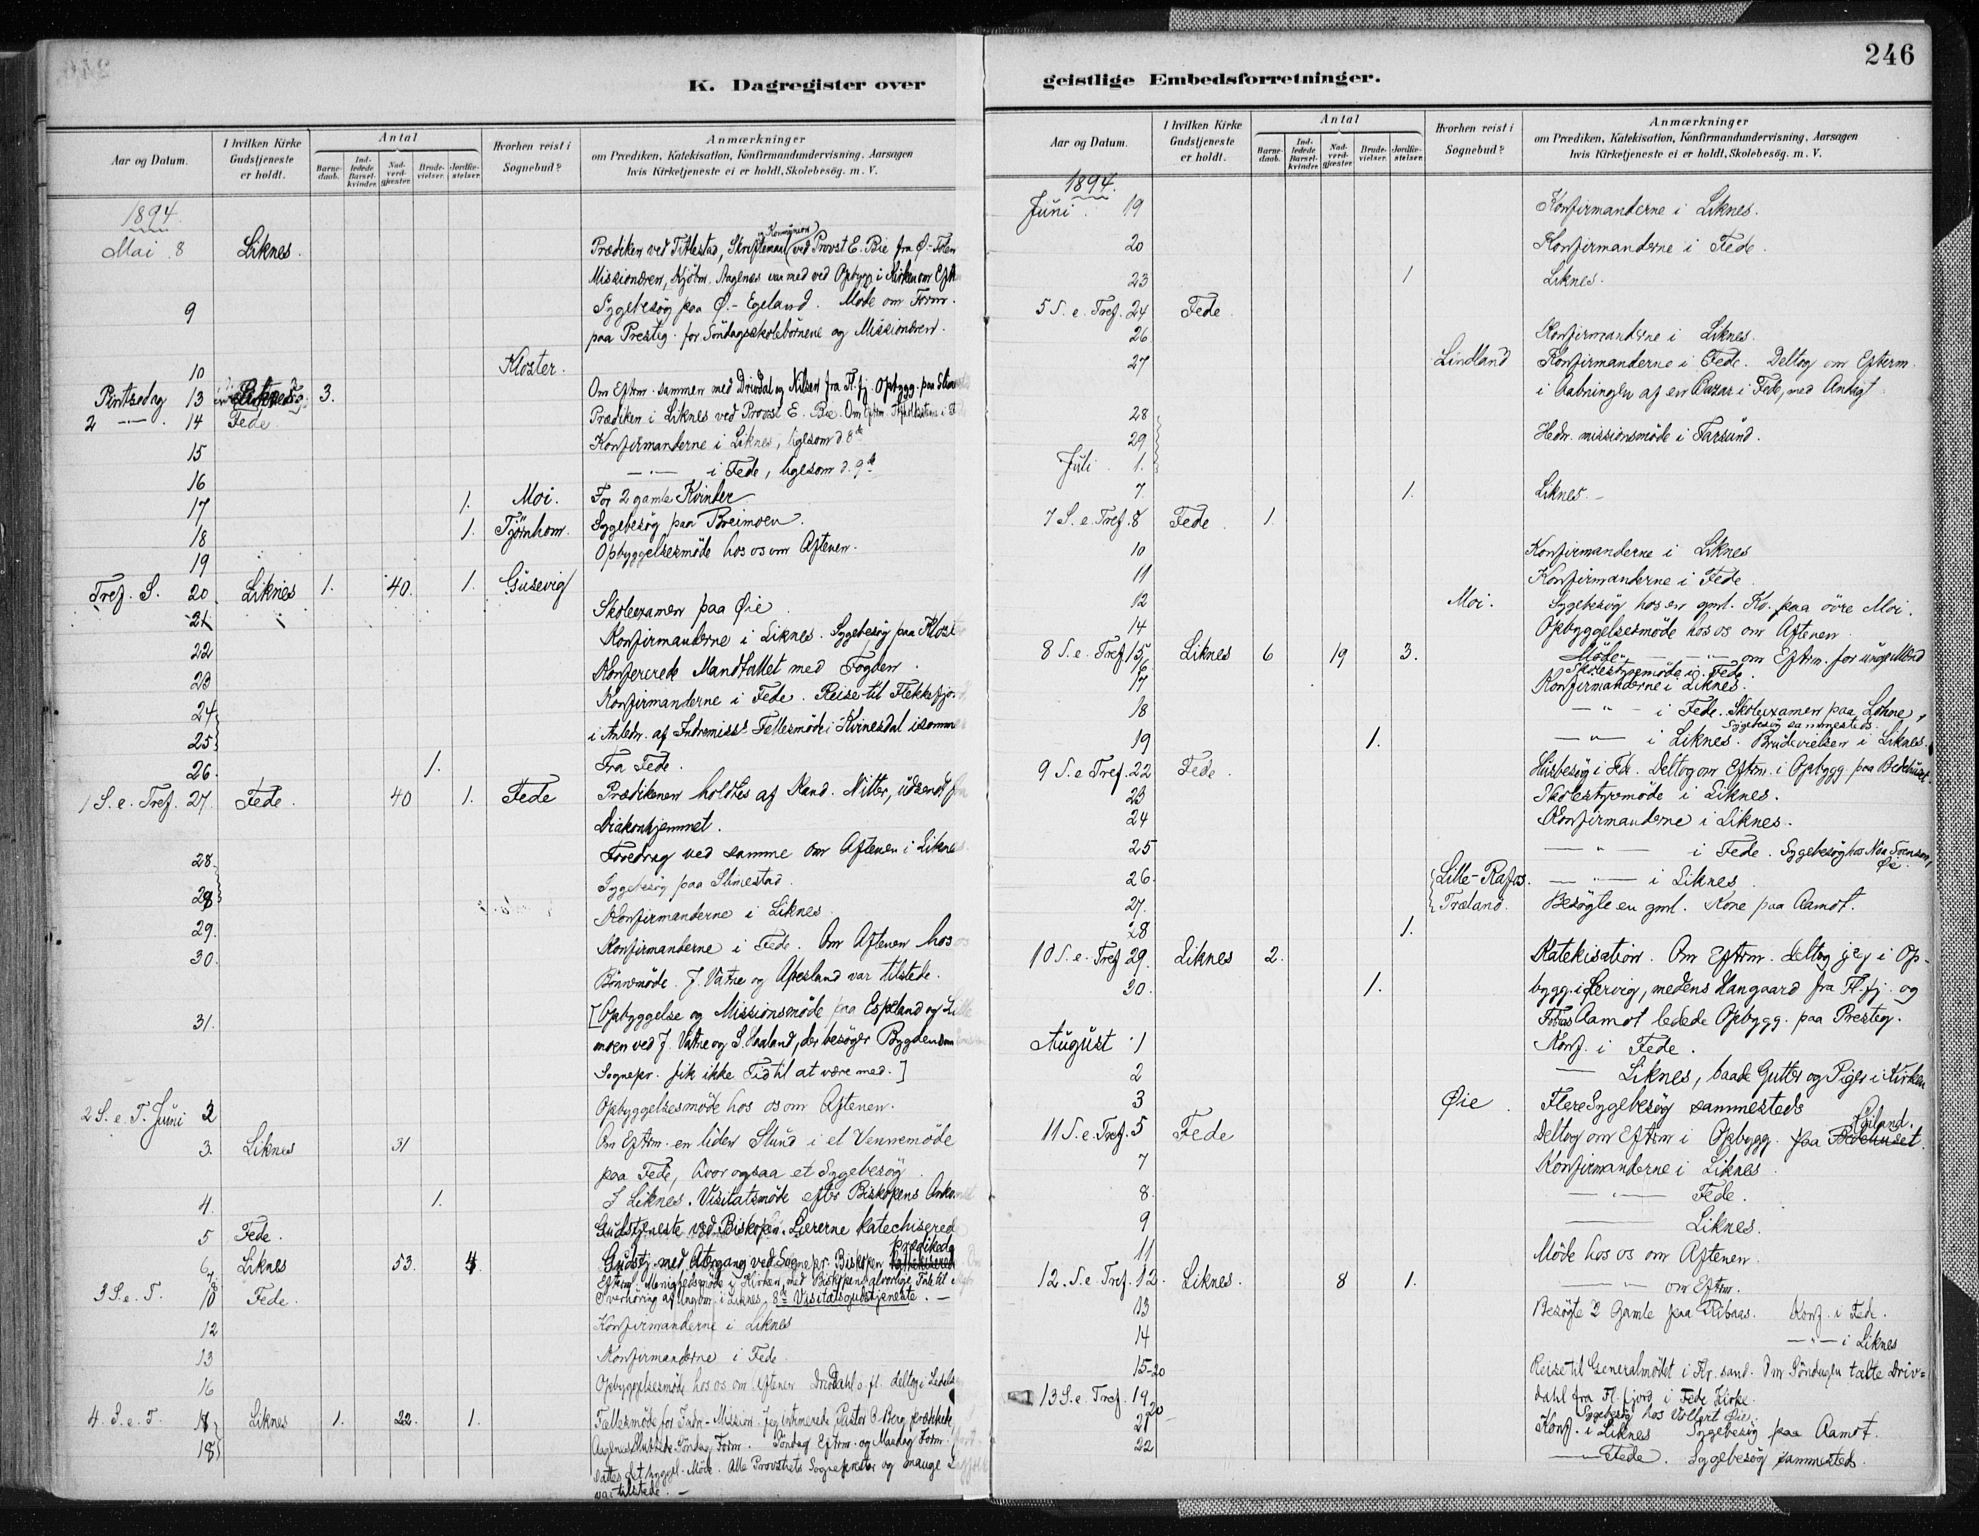 246
K. Dagregister over
geistlige Embedsforretninger.
Aar og Datum.
I hvilken Kirke Gudstjeneste er holdt.
Antal
Barne-daab.
Ind-ledede Barsel-kvinder.
Nad-verd-gjæster.
Brude-vielser.
Jordfæ-stelser.
Hvorhen reist i Sognebud?
Anmærkninger
om Prædiken, Katekisation, Konfirmandundervisning, Aarsagen
hvis Kirketjeneste ei er holdt, Skolebesøg. m. V.
1894.
Mai 8 Liknes. Prædiken ved Titlestad, Skriftemaal (og Kommunion) ved Provst E. Bie fra Ø.-Toten
Missionæren, Aagenes var med ved Opbygg. i Kirken om Eft
9 Sygebesøg paa Ø.-Egeland. Møde om Form.
paa Presteg. for Söndagsskolebörnene og Missionæren.
10 Kloster.
Pentsedag 13 3. Om Eftrm. sammen med Drivdal og Nilsen fra Fl.fj. Opbygg. paa
2 —"— 14 Fede Prædiken i Liknes ved Provst E. Bie. Om Eftrm.
15 Konfirmanderne i Liknes, ligesom d. 8de
16 —"— i Fede, ligesom d. 9de
17 1. Moi. For 2 gamle Kvinder
18 1. Tjörnhom. Sygebesøg paa Breimoen.
19 Opbyggelsesmøde hos os om Aftenen.
Tref. S. 20 Liknes 1. 40. 1. Gusevig
21 Skoleexamen paa Øie
22 Konfirmanderne i Liknes. Sygebesøg paa Kloster
23 Konfererede Mandtallet med Fogden.
24 Konfirmanderne i Fede. Reise til Flekkefjord
25 i Anledn. af Indremiss. Fellesmøde i Kvinesdal isommer
26. 1. Fra Fede.
1 S. e. Tref. 27. Fede. 40 1. Fede Prædikenen holdtes af Kand. Nitter, udsendt fra
Diakonhjemmet.
Foredrag ved samme om Aftenen i Liknes.
28. Sygebesøg paa Slimestad.
28 Konfirmanderne i Liknes
29. Konfirmanderne i Fede. Om Aftenen hos os
30. Bönnemöde. J. Vatne og Apesland var tilstede.
[Opbyggelse og Missionsmøde paa Espeland og Lille
31. moen ved J. Vatne og S. Haaland, der besøger Bygden
Sognepr. fik ikke Tid til at være med.]
2 S. e. T. Juni 2 Opbyggelsesmøde hos os om Aftenen.
3. Liknes 31 Om Eftrm. en liden Stund i et Vennemøde
paa Fede, hvor ogsaa et Sygebesøg
4. 1. I Liknes. Visitatsmøde efter Biskopens Ankomst
5 Fede. Gudstjeneste ved Biskopen. Lærerne katechiserede
6 Liknes 53. 4 Gudstj. med Altergang ved Sognepr. Biskopen prædikede
7 Eftrm. Menighedsmøde i Kirken, med Biskopens alvorlige Tale til
8 Overhöring af Ungdom. i Liknes. 8de Visitatsgudstjeneste. —
3 S. e. T. 10 Fede.
12 Konfirmanderne i Liknes
13 Konfirmanderne i Fede.
16 Opbyggelsesmøde hos os om Aftenen Drivdahl o. fl. deltog i Ledelse
4. S. e. T. 17 Liknes 1. 22. 1. Fællesmøde for Indr.-Mission. Jeg intimerede, Pastor O. Berg prædikede,
18 Aagenes sluttede. Söndag Form. Söndag Eftrm. og Mandag Form.
Møde. Alle Provstiets Sogneprester og mange
var tilstede. —
1894.
Juni 19 Konfirmanderne i Liknes.
20 Konfirmanderne i Fede.
23 1 Liknes.
5 S. e. Tref. 24 Fede.
26. Konfirmanderne i Liknes.
27 Lindland Konfirmanderne i Fede. Deltog om Efterm.
i Aabningen af en Bazar i Fede, med Andagt.
28
29 Hedn. missionsmøde i Farsund.
Juli 1.
7 1. Liknes. —
7 S. e. Tref. 8 Fede. 1.
10 Konfirmanderne i Liknes
11 Konfirmanderne i Fede.
12 Moi. Sygebesøg hos en gml. Ko. paa övre Moi.
14 Opbyggelsesmøde hos os om Aftenen.
8 S. e. Tref. 15 Liknes 6 19 3. Møde —"— om Eftrm. for unge Mænd
16 Skolestyremøde i Fede.
17 Konfirmanderne i Liknes.
18 —"— i Fede. Skoleexamen paa Lohne,
Sygebesøg sammesteds.
19 1. —"— i Liknes. Brudevielsen i Liknes.
9 S. e. Tref. 22 Fede. Husbesøg i Fede. Deltog om Eftrm. i Opbygg. paa Bedehuset.
23 Skolestyremøde i Liknes.
24 Konfirmanderne i Liknes.
25 —"— i Fede. Sygebesøg hos Noa Svensen, Øie.
26. Lille-Rafos. —"— i Liknes
27. Træland. Besøgte en gml. Kone paa Aamot.
28 1.
10 S. e. Tref. 29. Liknes 2. Katekisation. Om Eftrm. deltog jeg i Op-
30. 1. bygg. i Lervig, medens Haugaard fra Fl.fj. og
Tobias Aamot ledede Opbygg. paa Presteg.
August 1 Konf. i Fede.
2 — Liknes, baade Gutter og Piger i Kirken
3 Øie Flere Sygebesøg sammesteds
11 S. e. Tref. 5 Fede Deltog om Eftrm i Opbygg. paa Bedehuset.
7 Konfirmanderne i Liknes.
8. —"— Fede.
9 — Liknes.
11 Møde hos os om Aftenen.
12. S. e. Tref. 12. Liknes. 8 1. —"— om Eftrm.
13 Besøgte 2 Gamle paa Ribaas. Konf. i Fede.
14 —"— i Liknes
15-20 Reise til Generalmødet i Kr.sand. Om Søndagen talte Driv-
13 S. e. Tref. 19 dahl fra Fl.fjord i Fede Kirke.
20 Sygebesøg hos Vollert Øie.
21 Konf. i Liknes Sygebesøg paa Aamot.
22 —"— Fede. Sygebesøg sammesteds.